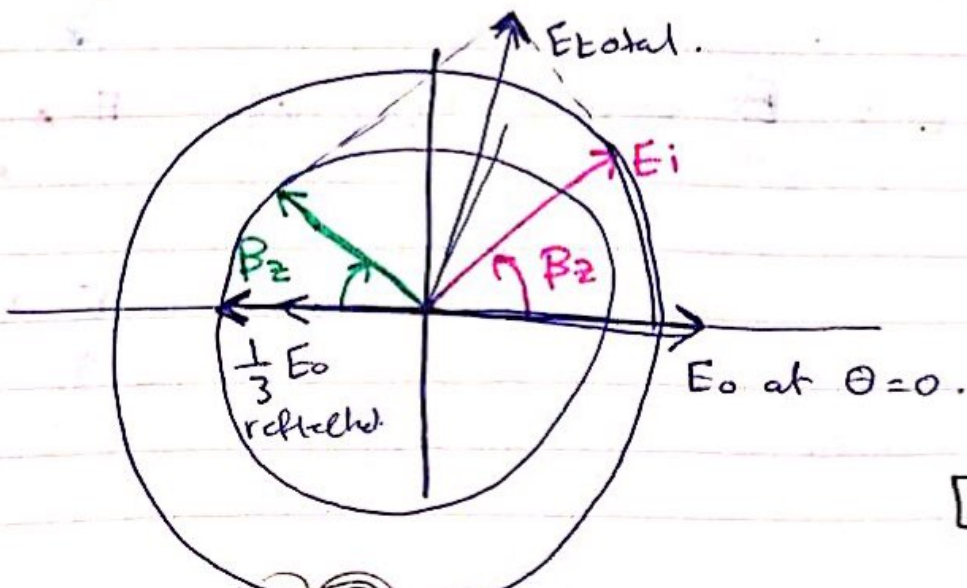 Etotal.
Ei
βz
βz
1/3 E₀
reflected.
E₀ at θ=0.
[